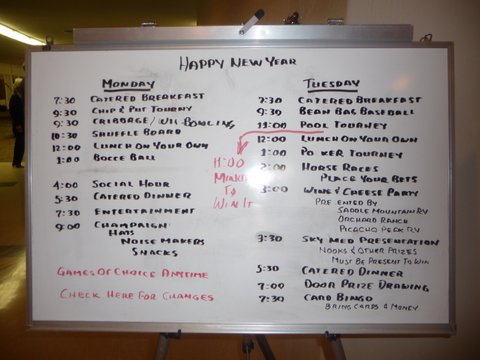 HAPPY NEW YEAR
MONDAY
7:30 CATERED BREAKFAST
9:30 CHIP & PUT TOURNY
9:30 CRIBBAGE/WII BOWLING
10:30 SHUFFLE BOARD
12:00 LUNCH ON YOUR OWN
1:00 BOCCE BALL
4:00 SOCIAL HOUR
5:30 CATERED DINNER
7:30 ENTERTAINMENT
9:00 CHAMPAIGN
HATS
NOISE MAKERS
SNACKS
GAMES OF CHOICE ANYTIME
CHECK HERE FOR CHANGES
11:00
MINUTE
TO
WIN IT
TUESDAY
7:30 CATERED BREAKFAST
9:30 BEAN BAG BASEBALL
11:00 POOL TOURNEY
12:00 LUNCH ON YOUR OWN
1:00 POKER TOURNEY
2:00 HORSE RACES
PLACE YOUR BETS
3:00 WINE & CHEESE PARTY
PRESENTED BY
SADDLE MOUNTAIN RV
ORCHARD RANCH
PICACHO PEAK RV
3:30 SKY MED PRESENTATION
NOOKS & OTHER PRIZES
MUST BE PRESENT TO WIN
5:30 CATERED DINNER
7:00 DOOR PRIZE DRAWING
7:30 CARD BINGO
BRING CARDS & MONEY